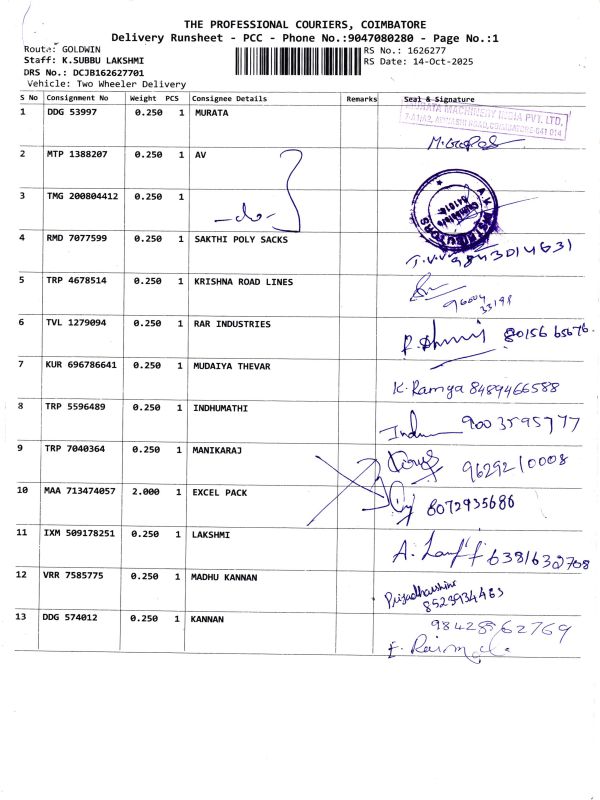 THE PROFESSIONAL COURIERS, COIMBATORE
Delivery Runsheet - PCC - Phone No.:9047080280 - Page No.:1
Route: GOLDWIN RS No.: 1626277
Staff: K.SUBBU LAKSHMI RS Date: 14-Oct-2025
DRS No.: DCJB162627701
Vehicle: Two Wheeler Delivery
S No Consignment No Weight PCS Consignee Details Remarks Seal & Signature
1 DDG 53997 0.250 1 MURATA MURATA MACHINERY INDIA PVT. LTD,
7-A1/A2, AVINASHI ROAD, COIMBATORE-641 014
2 MTP 1388207 0.250 1 AV
3 TMG 200804412 0.250 1 -do- A.V. DISTRIBUTORS
4 RMD 7077599 0.250 1 SAKTHI POLY SACKS T.V.V 9843014631
5 TRP 4678514 0.250 1 KRISHNA ROAD LINES
6 TVL 1279094 0.250 1 RAR INDUSTRIES 80156 65676.
7 KUR 696786641 0.250 1 MUDAIYA THEVAR K. Ramya 8489466588
8 TRP 5596489 0.250 1 INDHUMATHI 9003595777
9 TRP 7040364 0.250 1 MANIKARAJ 9629210008
10 MAA 713474057 2.000 1 EXCEL PACK 8072935686
11 IXM 509178251 0.250 1 LAKSHMI 6381632708
12 VRR 7585775 0.250 1 MADHU KANNAN Priyadharshine
8523934463
13 DDG 574012 0.250 1 KANNAN 9842856 2769